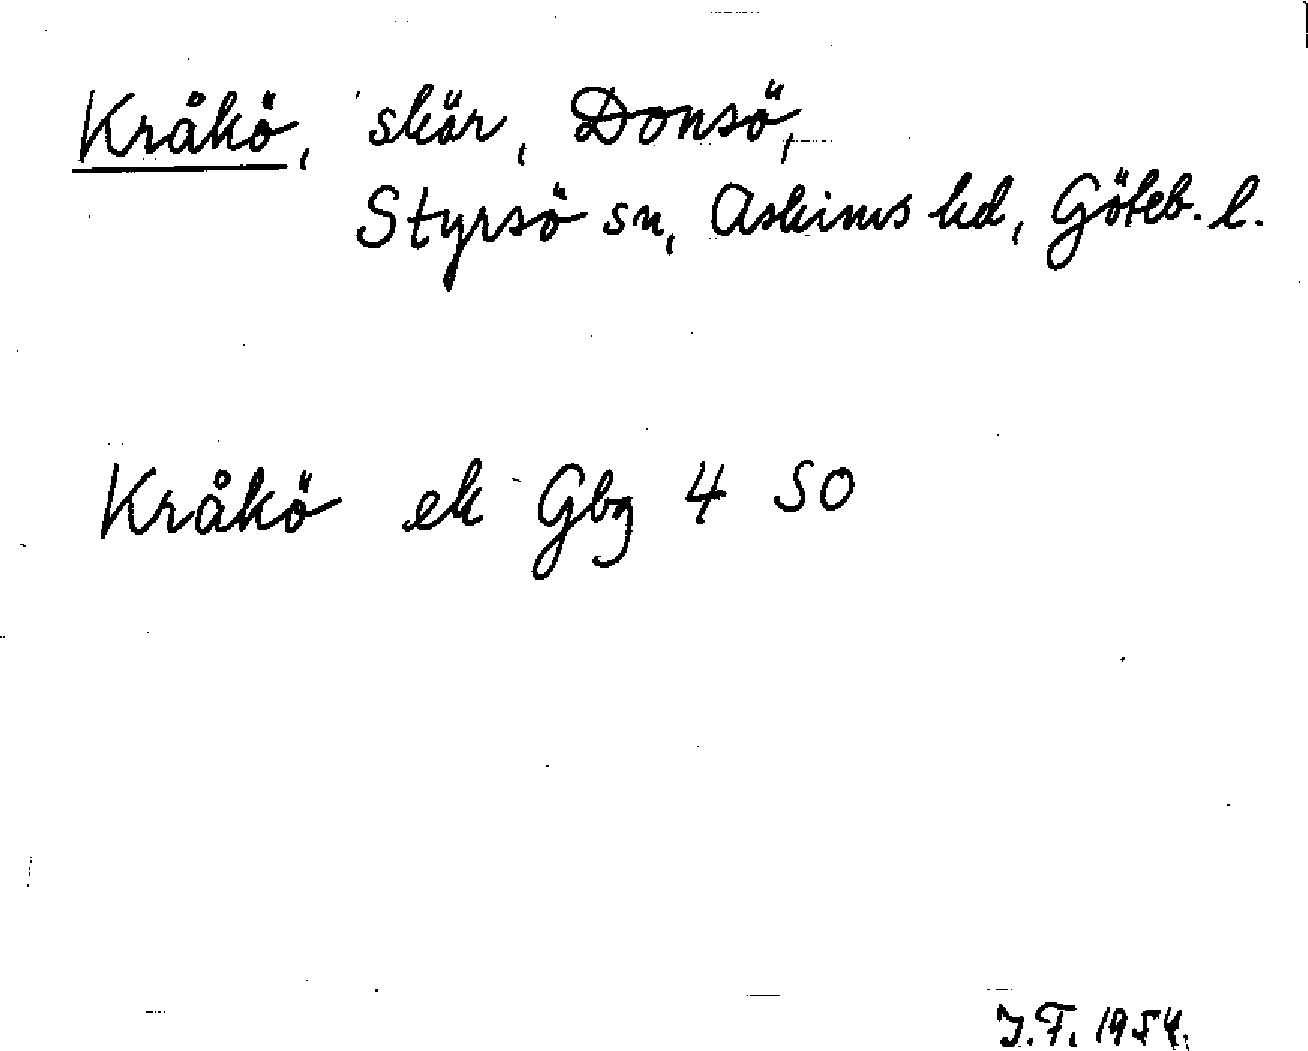 Kråkö, skär, Donsö,
Styrsö sn, Askims hd, Göteb. l.
Kråkö ek Gbg 4 SO
J.F. 1954.